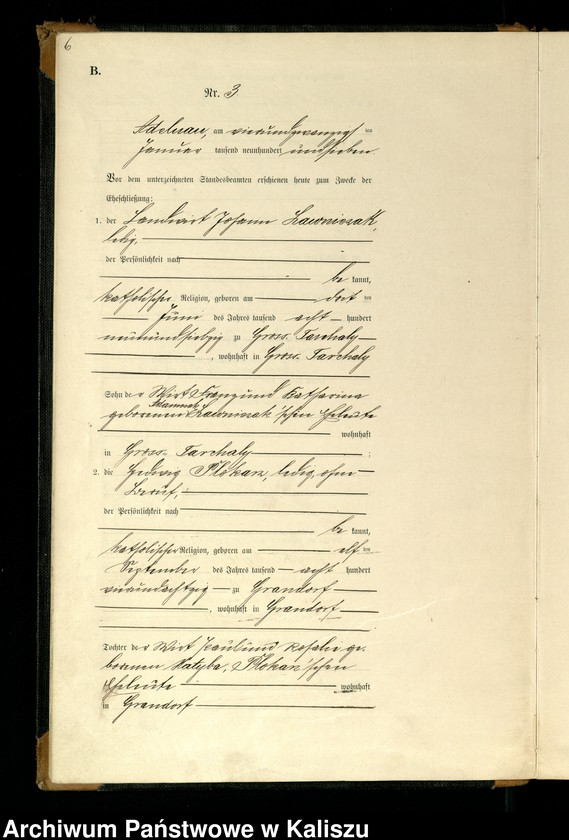 6
B.
Nr. 3
Adelnau, am vierundzwanzigsten
Januar tausend neunhundert undsieben
Vor dem unterzeichneten Standesbeamten erschienen heute zum Zwecke der
Eheschließung:
1. der Landwirt Johann Lawniczak,
ledig,
der Persönlichkeit nach
be kannt,
katholischer Religion, geboren am dritten
Juni des Jahres tausend acht hundert
neunundsiebzig zu Gross Tarchaly
, wohnhaft in Gross Tarchaly
Sohn der Wirt Franz und Katharina
geborenen Adamczak Lawniczak'schen Eheleute
wohnhaft
in Gross Tarchaly ;
2. die Hedwig Plokarz, ledig, ohne
Beruf,
der Persönlichkeit nach
be kannt,
katholischer Religion, geboren am elften
September des Jahres tausend acht hundert
vierundachtzig zu Grandorf
, wohnhaft in Grandorf
Tochter der Wirt Paul und Rosalie ge-
borenen Ratajba, Plokarz'schen
Eheleute wohnhaft
in Grandorf
Archiwum Państwowe w Kaliszu